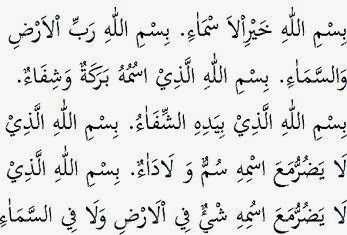 بِسْمِ اللهِ خَيْرِاْلاَ سْمَاءِ. بِسْمِ اللهِ رَبِّ اْلاَرْضِ
وَالسَّمَاءِ. بِسْمِ اللهِ الَّذِيْ اسْمُهُ بَرَكَةٌ وَشِفَاءٌ.
بِسْمِ اللهِ الَّذِيْ بِيَدِهِ الشِّفَاءُ. بِسْمِ اللهِ الَّذِيْ
لَا يَضُرُّمَعَ اسْمِهِ سُمٌّ وَ لَادَاءٌ. بِسْمِ اللهِ الَّذِيْ
لَا يَضُرُّمَعَ اسْمِهِ شَيْءٌ فِي اْلَارْضِ وَلَا فِي السَّمَاءِ